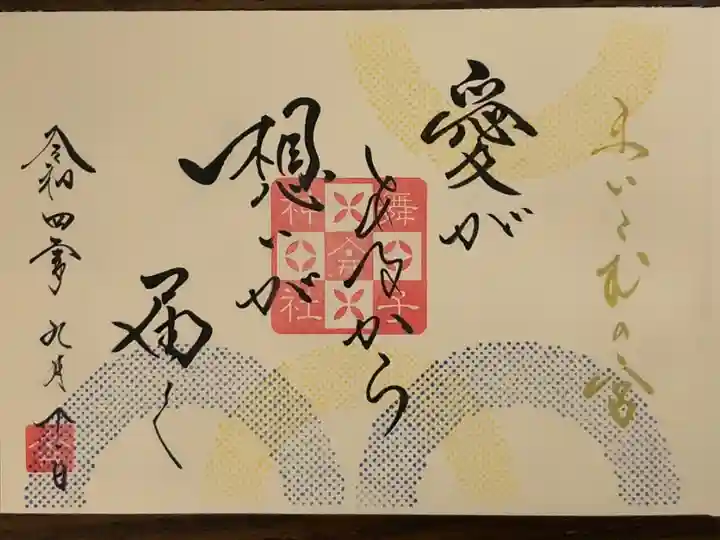 まいこむの宮
愛が
あるから
想いが
届く
令和四年九月十一日
舞子
六
神社